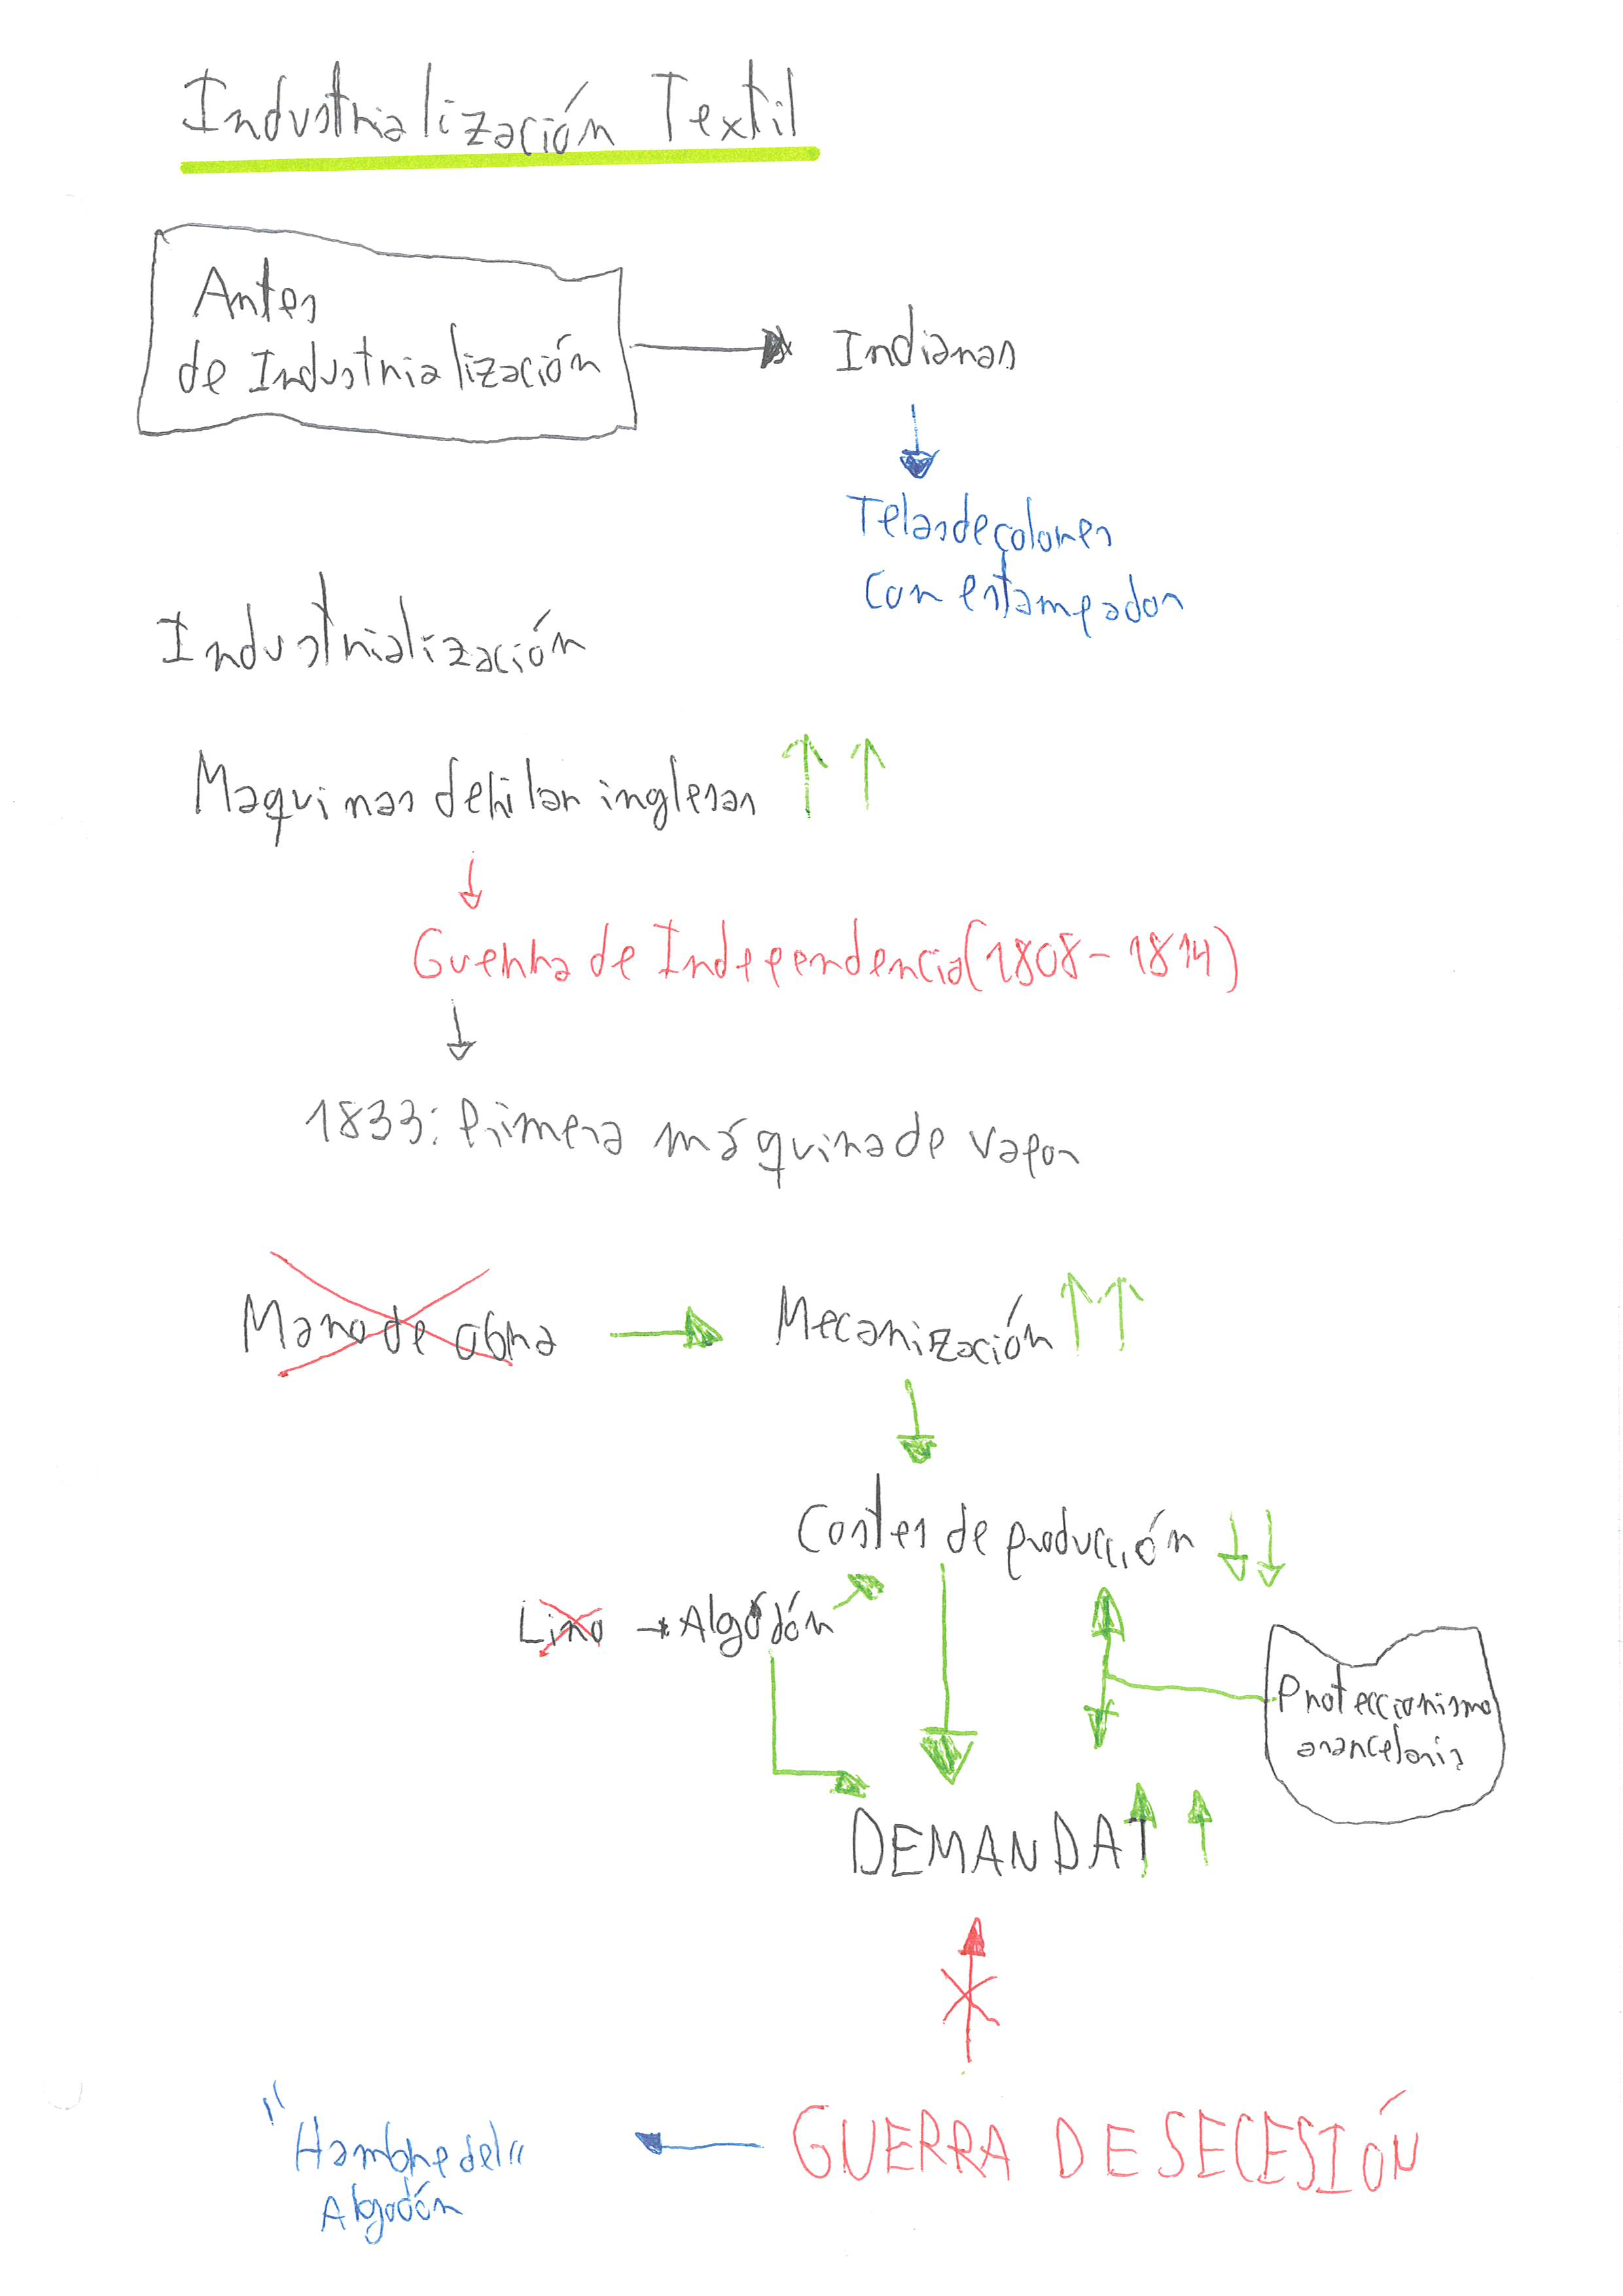 Industrialización Textil
Antes
de Industrialización
Indianas
Telas de colores
con estampados
Industrialización
Maquinas de hilar inglesas ↑ ↑
Guerra de Independencia (1808-1814)
1833: Primera máquina de vapor
Mano de obra → Mecanización ↑ ↑
Costes de producción ↓ ↓
Lino → Algodón
Proteccionismo
arancelario
DEMANDA ↑ ↑
GUERRA DE SECESIÓN
"Hambre del"
Algodón